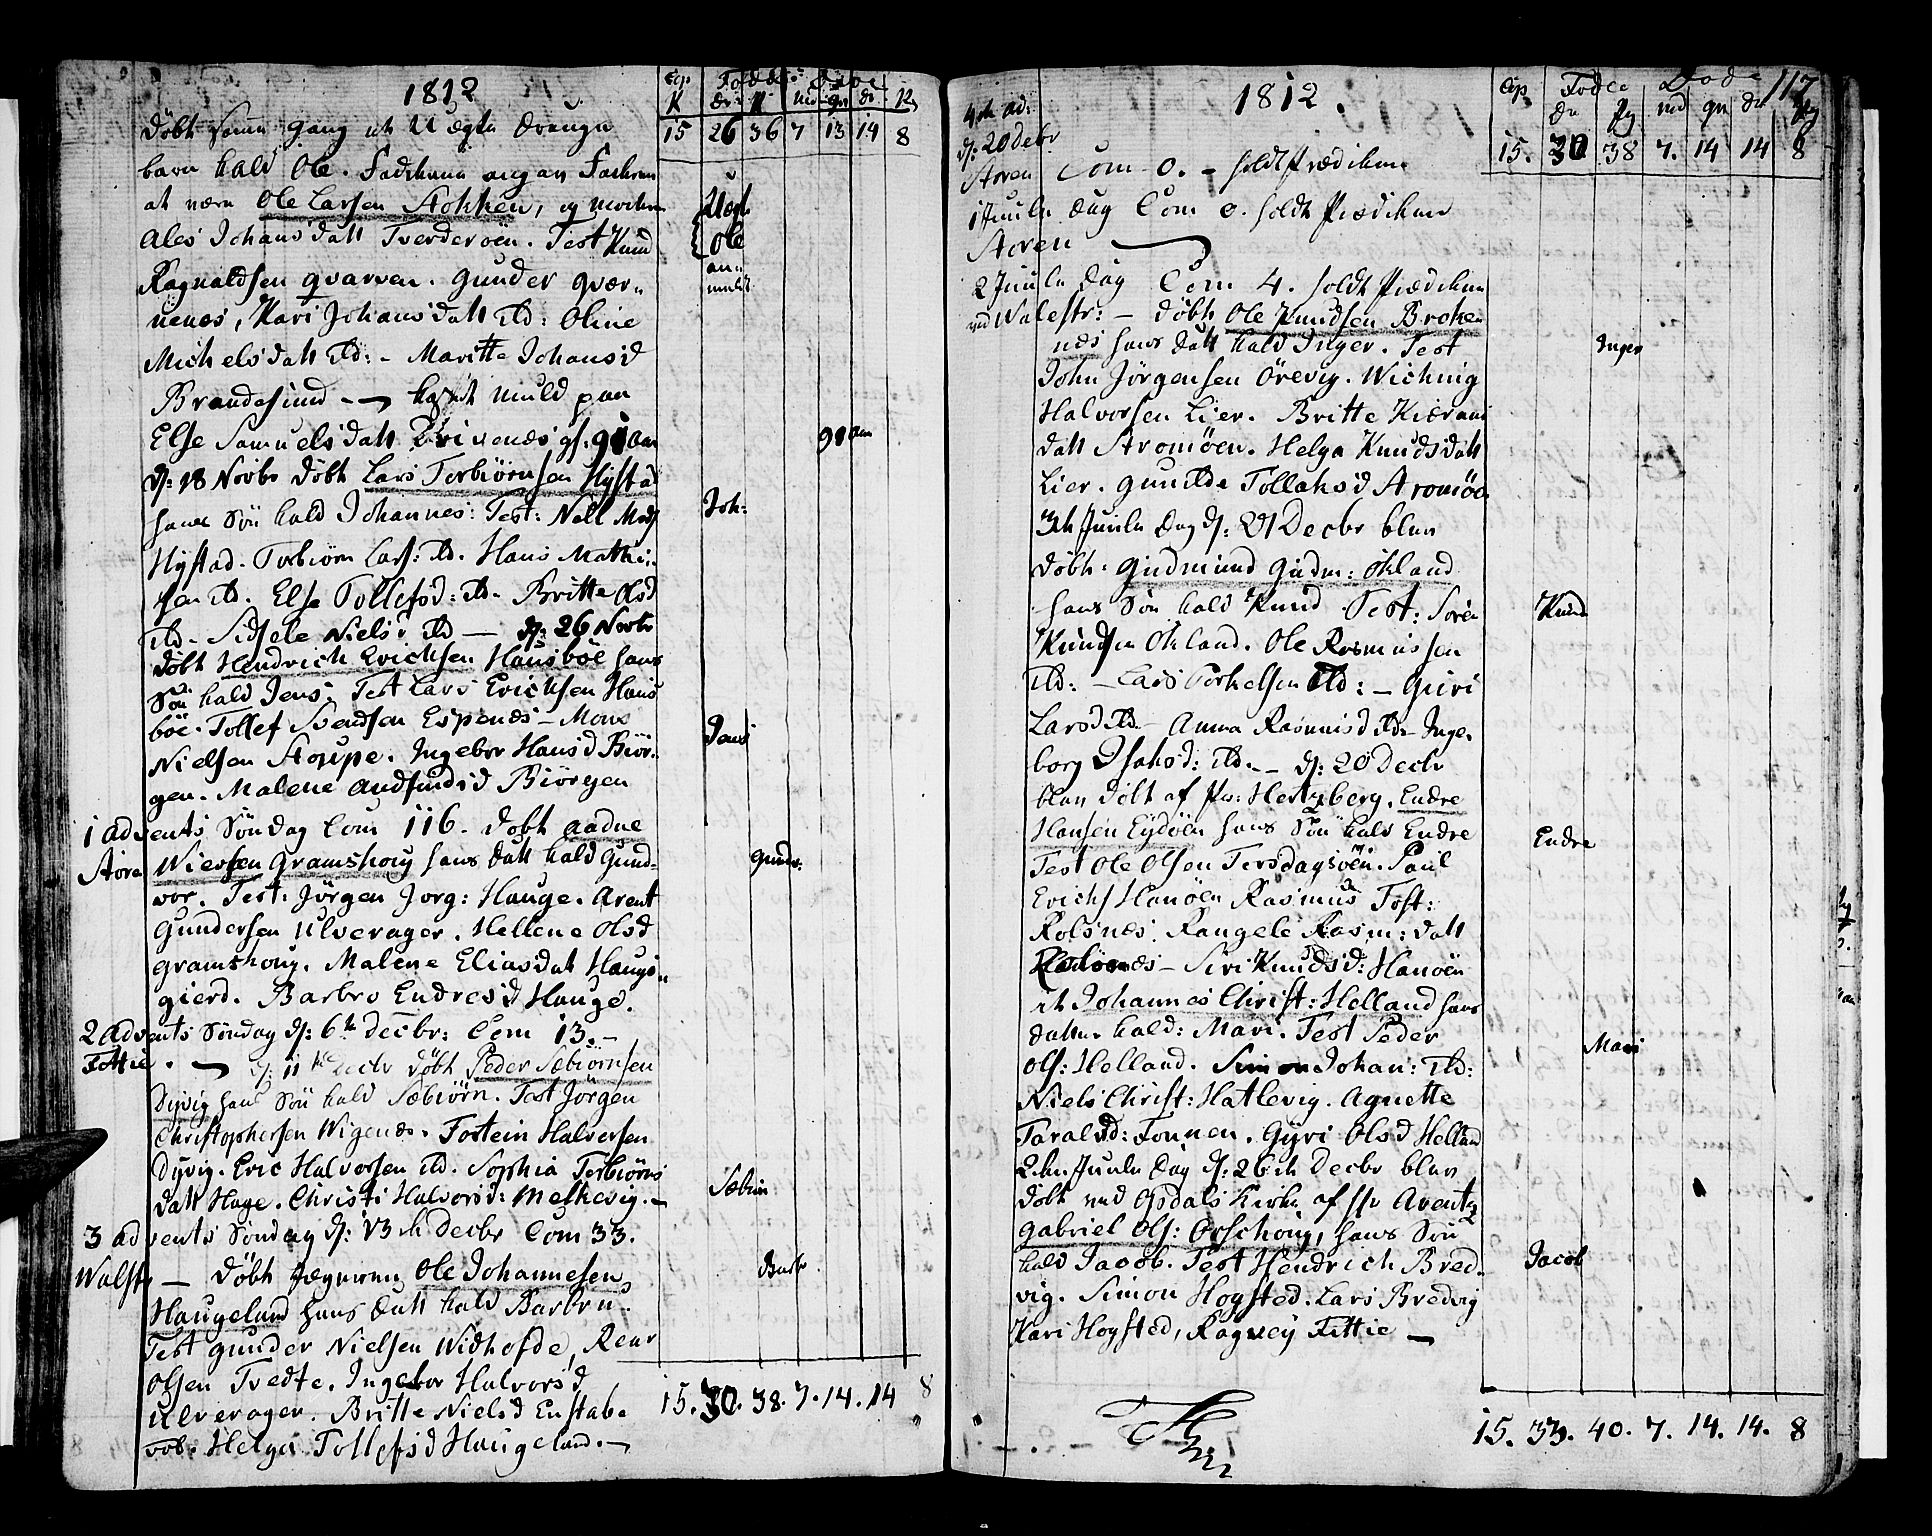 1812
Cop Födde Döde
K dr: K md qv dr K
15 26 36 7 13 14 8
döbt samme gang et Uægte drenge
barn kald Ole. Fadderne angav Faderen
at være Ole Larsen Stokken, og moderen
Ales Johansdatt Tverderöen. Test Knud
Uægt
Ole
Ragnaldsen qvarven. Gunder qvær-
nenes, Kari Johansdatt ibd: Oline
Michelsdatt ibd: - Maritte Johansd
Brandesund - kastet muld paa
Else Samuelsdatt gl. 91 aar
91 aar
d: 18 Novbr döbt Lars Torbiörnsen Hystad
hans Sön kald Johannes: Test: Nell Mads
Joh:
Hystad. Torbiörn Lars: ibd. Hans Mathi-
sen ibd. Else Tollefsd: ibd. Britte Olsd
ibd. Sidsele Nielsd ibd — d: 26 Novbr
döbt Hendrich Erichsen Hausböe hans
Sön kald Jens. Test Lars Erichsen Haus
böe. Tollef Svendsen Espenes - Mons
Jens
Nielsen Stoupe. Ingebor Hansd Biör-
gen. Malene Andfindsd Biörgen
1 advents Söndag Com 116. döbt Aadne
Store Nielsen Gramshoug hans datt kald Gund-
Gundv:
vor. Test: Jörgen Jorg: Hauge. Arent
Gundersen Ulverager. Hellene Olsd
Gramshoug. Malene Eliasdat Haugs-
gierd. Barbro Endresd Hauge.
2 advents Söndag d: 6te Decbr: Com 13.-
Fittie. — d: 11te Decbr döbt Peder Sæbiörnsen
Dyvig hans Sön kald Sæbiörn. Test Jörgen
Christophersen Wigenes. Fostein Halversen
Dyvig. Eric Halvorsen ibd. Sophia Torbiörns
datt Hage. Christi Halvorsd: Melkevig.—
Sæbiörn
3 advents Söndag d: 13de Decbr Com 33.
Walestr — döbt Ole Johannesen
Barbr
Haugeland hans datt kald Barbru.
Test Gunder Nielsen Widhofde, Rear
Olsen Tvedte. Ingebor Halvorsd
Ulverager. Britte Nielsd Enstabe
vob. Helga Tollefsd Haugeland.—
15. 30. 38. 7. 14. 14 8
1812. 117
Cop Födde Döde
dr pg md qv dr pg
15. 30 38 7. 14 14 8
4de ad:
d: 20 Debr
Storen Com 0. - holdt Prædiken
1 Juule dag Com 0. holdt Prædiken
Storen
2 Juule dag Com 4. holdt Prædiken
ved Walestr: - döbt Ole Knudsen Broken
nes hans datt kald Inger. Test
Inger
John Jörgensen Örevig. Wichnig
Halvorsen Lier. Britte Kierans
datt Stromöen. Helga Knudsdatt
Lier. Gunilde Tollaksd Stromöe.
3de Juule dag d: 27 Decbr blev
döbt: Gudmund Gudm: Ökland
hans Sön kald Knud. Test: Sören
Knud
Knudsen Ökland. Ole Rasmussen
ibd: - Lars Torkelsen ibd: - Guri
Larsd ibd - Anna Rasmusd ibd - Inge-
borg Isaksd: ibd. - d: 20 Decbr
blev döbt af Pr: Hertzberg, Endre
Hansen Eydöen hans Sön kald Endre
Endre
Test Ole Olsen Tersdagsöen. Paul
Erichs Hanöen Rasmus Tost:
Rolsnes. Rangele Rasm: datt
Rolsnes - Siri Knudsd: Hanöen
it Johannes Christ: Helland hans
datter kald: Mari. Test Peder
Mari
Ols: Helland. Simon Johan: ibd:
Niels Christ: Hatlevig. Agnette
Taralsd: Fonnen. Gyri Olsd Helland
2den Juule dag d: 26de Decbr blev
döbt ved Opdals Kirke af Hr Arentz
Gabriel Ols: Orschoug, hans Sön
kald Jacob. Test Hendrich Bred-
Jacob
vig. Simon Hogsted. Lars Bredvig
Kari Hogsted, Ragney Fittie —
15. 33. 40. 7. 14. 14. 8